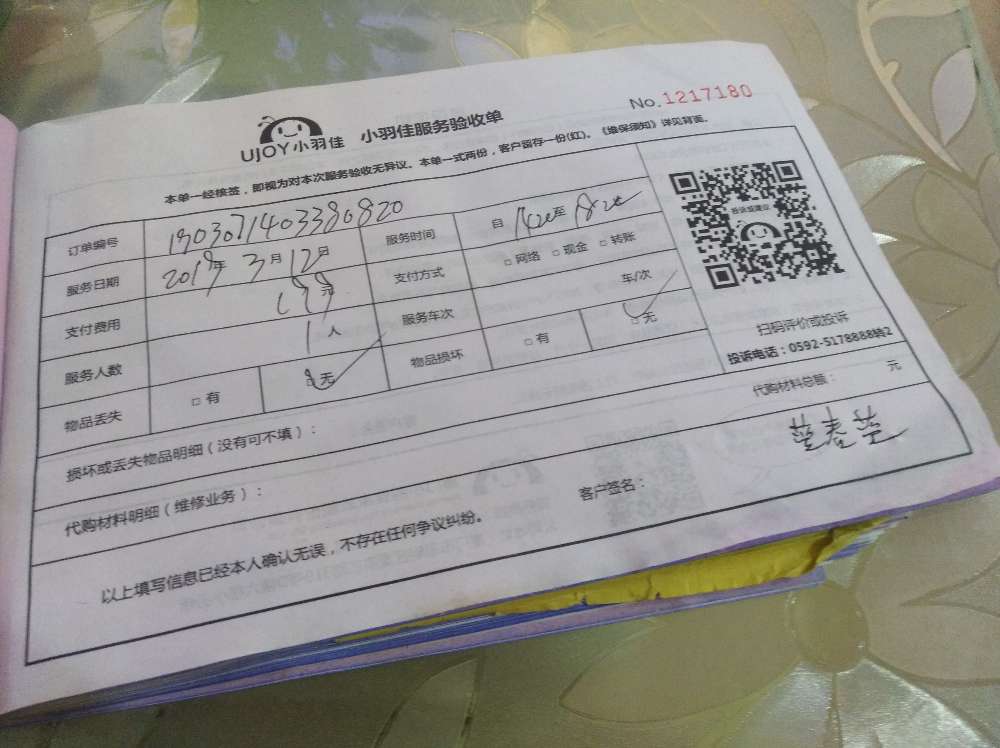 No.1217180
UJOY小羽佳 小羽佳服务验收单
本单一经核签，即视为对本次服务验收无异议。本单一式两份，客户留存一份(红)。《维保须知》详见背面。
订单编号 190307140338082​0 服务时间 自 至
服务日期 2019年3月12日 支付方式 □网络 □现金 □转账
支付费用 元 服务车次 车/次
服务人数 1人 物品损坏 □有 □无
物品丢失 □有 □无
投诉或建议
扫码评价或投诉
投诉电话：0592-5178888转2
损坏或丢失物品明细（没有可不填）：
代购材料明细（维修业务）： 代购材料总额： 元
以上填写信息已经本人确认无误，不存在任何争议纠纷。 客户签名：